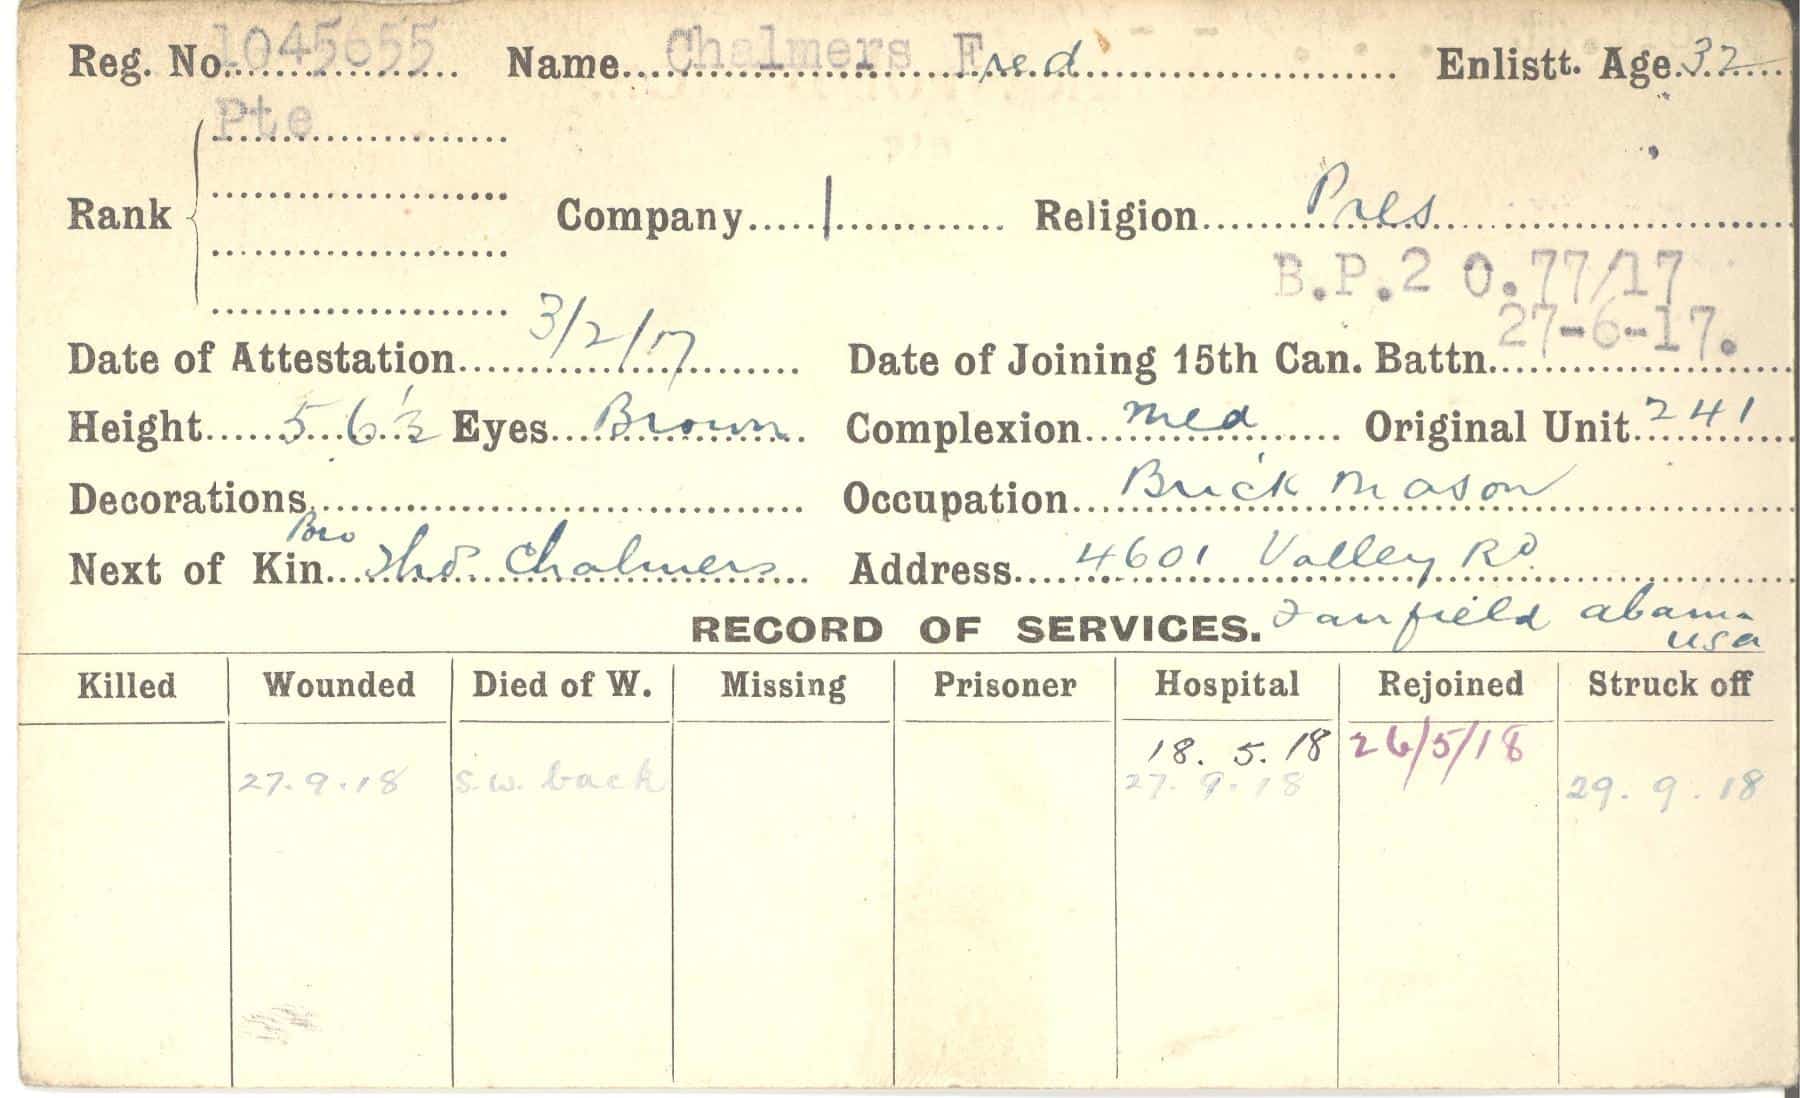 Reg. No. 1045655 Name Chalmers Fred Enlistt. Age 32
Pte
Rank Company 1 Religion Pres
B.P.2 O.77/17
Date of Attestation 3/2/17 Date of Joining 15th Can. Battn. 27-6-17.
Height 5 6 1/2 Eyes Brown Complexion Med Original Unit 241
Decorations Occupation Brick Mason
Next of Kin Bro Thos Chalmers Address 4601 Valley Rd
RECORD OF SERVICES. Fanfield abama
usa
Killed Wounded Died of W. Missing Prisoner Hospital Rejoined Struck off
18. 5. 18 26/5/18
27.9.18 s.w. back 27.9.18 29.9.18